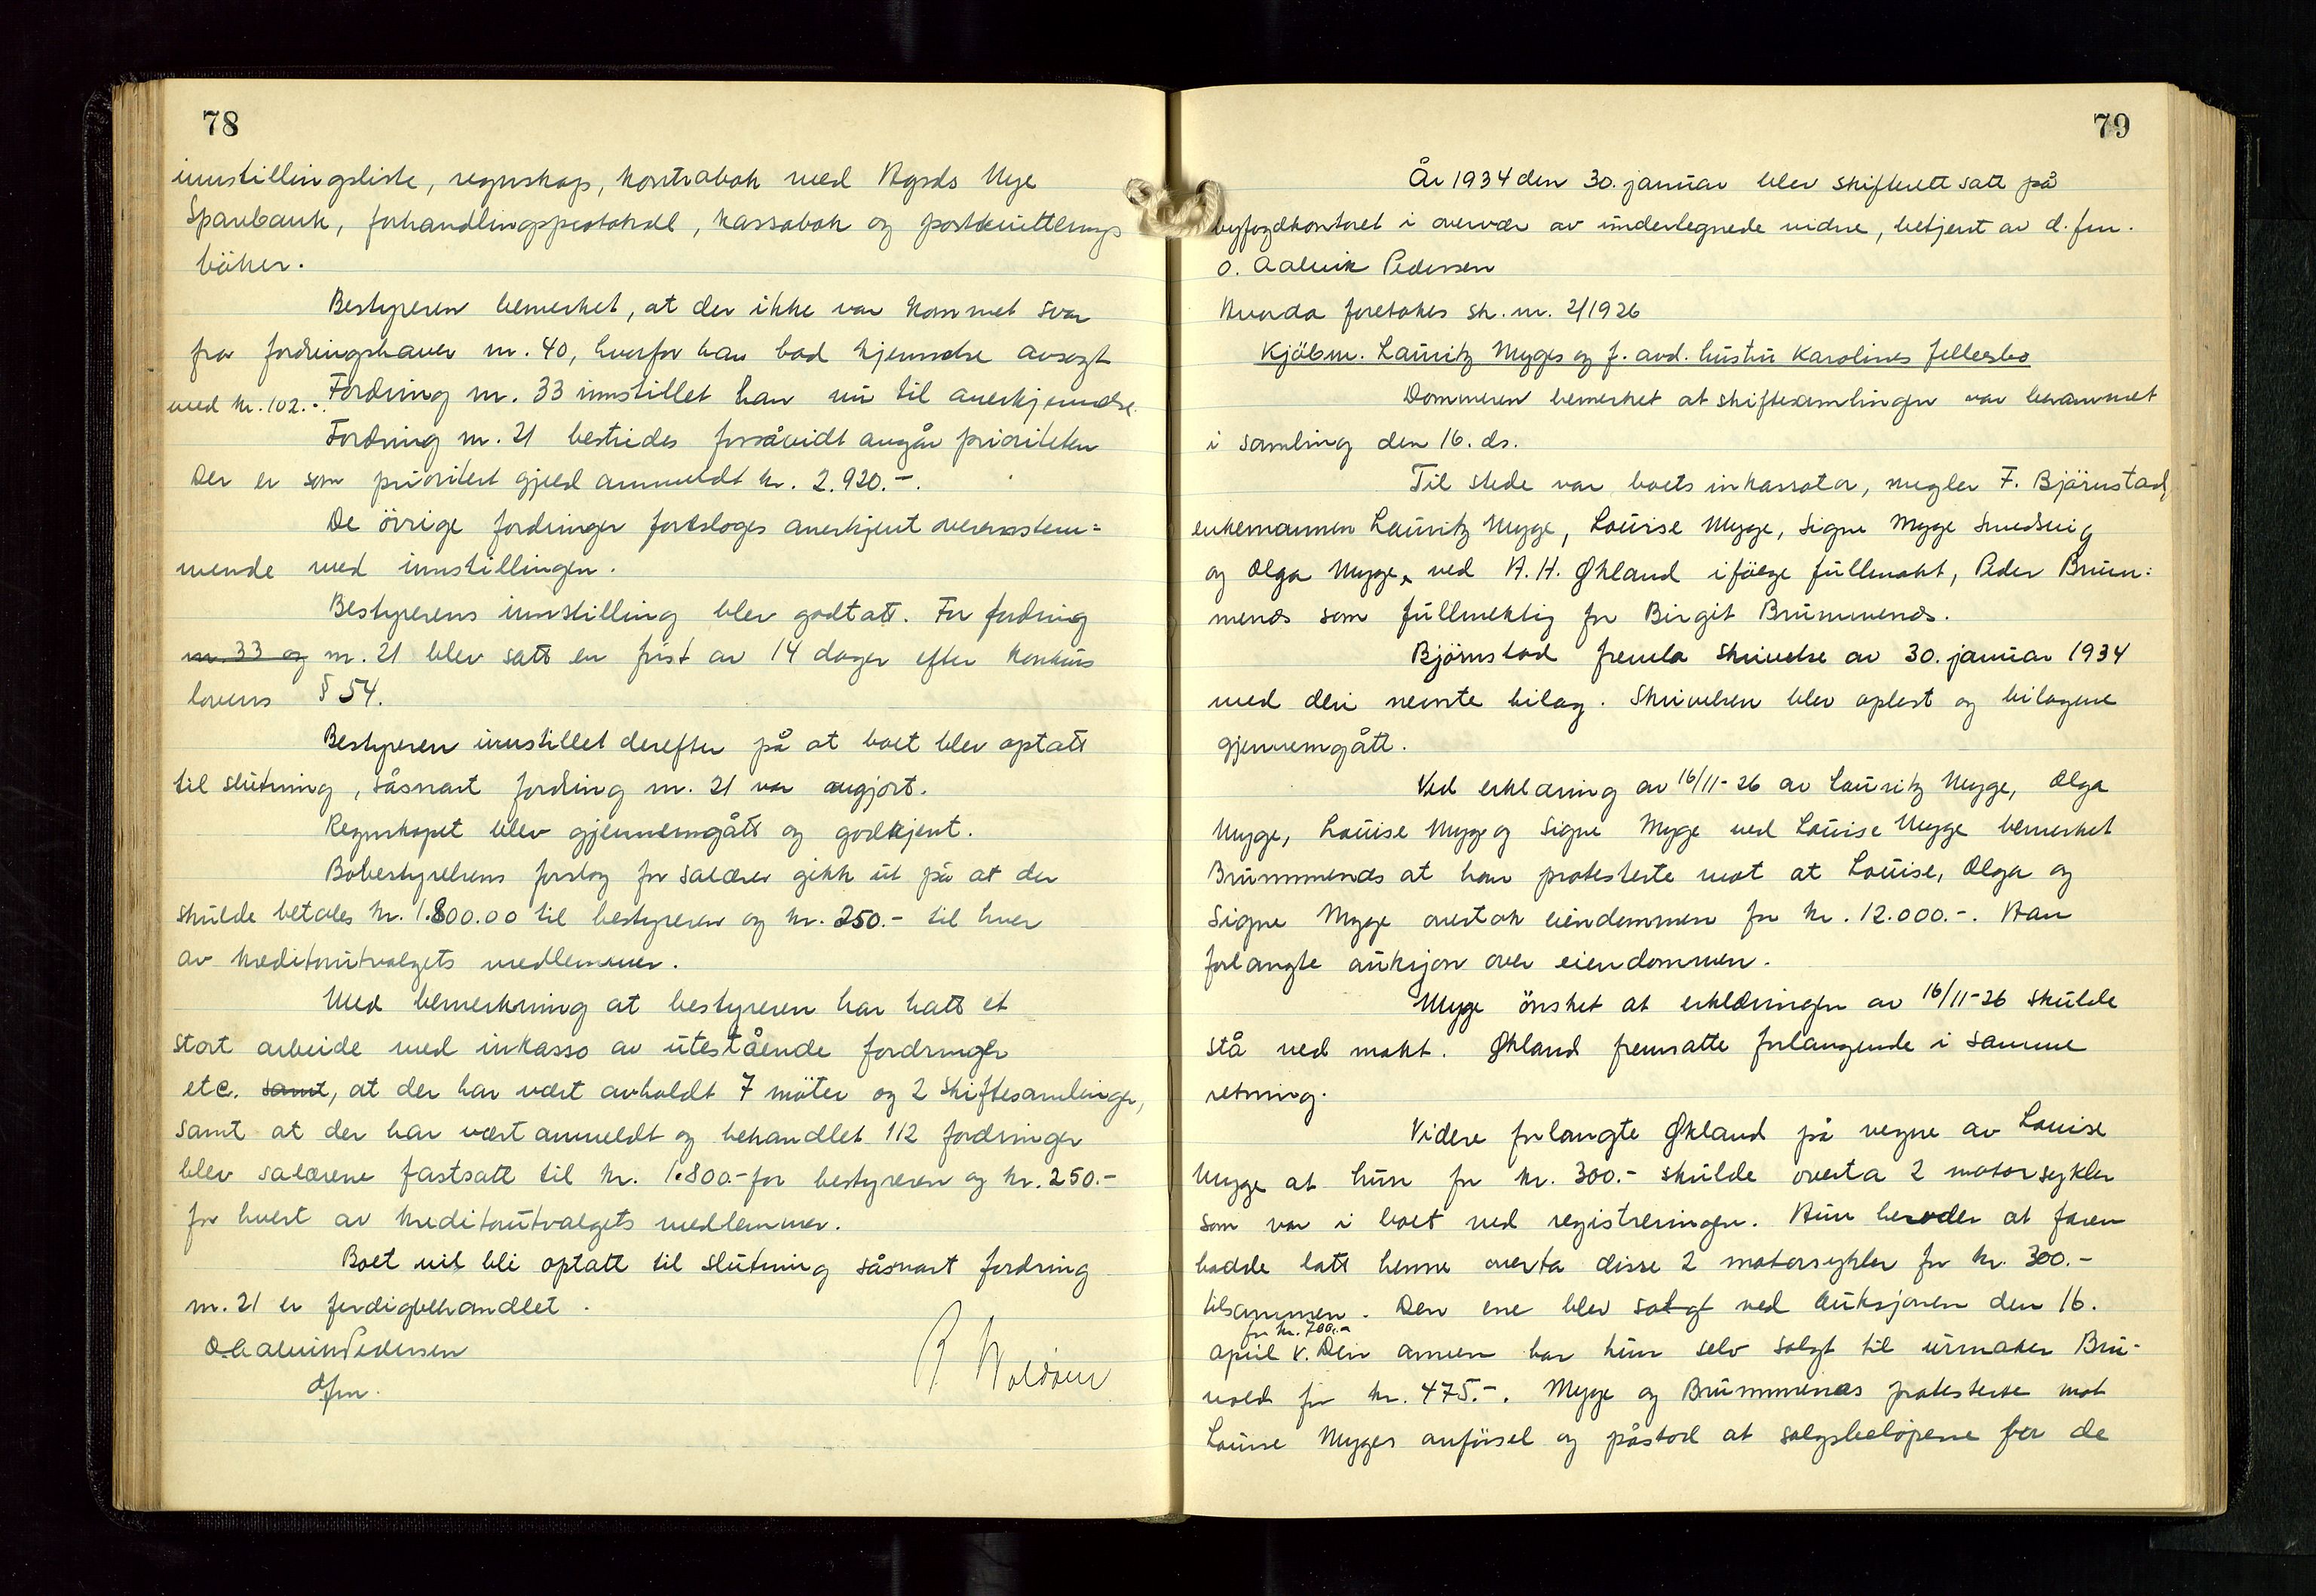 78
innstillingsliste, regnskap, kontrabok med Agds Nye
Sparebank, forhandlingsprotokoll, kassabok og postkvitterings
böker.
Bestyreren bemerket, at der ikke var kommet svar
fra fordringshaver nr. 40, hvorfor han bad kjennelse avsagt
med kr. 102.-. Fordring nr. 33 innstillet han nu til anerkjennelse.
Fordring nr. 21 bestrides forsåvidt angår prioriteten
Der er som prioritert gjeld anmeldt kr. 2.920.-.
De övrige fordringer foresloges anerkjent overensstem=
mende med innstillingen.
Bestyrerens innstilling blev godtatt. For fordring
nr. 33 og nr. 21 blev satt en frist av 14 dager efter konkurs
lovens § 54.
Bestyreren innstillet derefter på at boet blev optatt
til slutning, såsnart fordring nr. 21 var avgjort.
Regnskapet blev gjennemgått og godkjent.
Bobestyrelsens forslag for salærer gikk ut på at der
skulde betales kr. 1.800.00 til bestyreren og kr. 250.- til hver
av kreditorutvalgets medlemmer.
Med bemerkning at bestyreren har hatt et
stort arbeide med inkasso av utestående fordringer
etc. samt, at der har vært avholdt 7 möter og 2 skiftesamlinger,
samt at der har vært anmeldt og behandlet 112 fordringer
blev salærene fastsatt til kr. 1.800.- for bestyreren og kr. 250.-
for hvert av kreditorutvalgets medlemmer.
Boet vil bli optatt til slutning såsnart fordring
nr. 21 er ferdigbehandlet.
O. Aalvik Pedersen
dfm.
79
År 1934 den 30. januar blev skifterett satt på
byfogdkontoret i overvær av underlegnede vidne, betjent av d. fm.
O. Aalvik Pedersen
Hvorda foretokes sk. nr. 2/1926
Kjöbm. Lauritz Mygges og f. avd. hustru Karolines fellesbo
Dommeren bemerket at skiftesamlingen var berammet
i samling den 16. ds.
Til stede var boets inkassator, megler F. Björnstad,
enkemannen Lauritz Mygge, Louise Mygge, Signe Mygge Smedsvig
og Olga Mygge, ved A. H. Økland ifölge fullmakt, Peder Brum:
menæs som fullmektig for Birgit Brummenæs.
Björnstad fremla skrivelse av 30. januar 1934
med deri nevnte bilag. Skrivelsen blev oplest og bilagene
gjennemgått.
Ved erklæring av 16/11-26 av Lauritz Mygge, Olga
Mygge, Louise Mygge og Signe Mygge ved Louise Mygge bemerket
Brummenæs at han protesterte mot at Louise, Olga og
Signe Mygge overtok eiendommen for kr. 12.000.-. Han
forlangte auksjon over eiendommen.
Mygge önsket at erklæringen av 16/11-26 skulde
stå ved makt. Økland fremsatte forlangende i samme
retning.
Videre forlangte Økland på vegne av Louise
Mygge at hun for kr. 300.- skulde overta 2 motorsykler
som var i boet ved registreringen. Hun beroder at faren
hadde latt henne overta disse 2 motorsykler for kr. 300.-
tilsammen. Den ene blev solgt ved auksjonen den 16.
for kr. 700.-
april v. Den annen har hun selv solgt til urmaker Bru-
vold for kr. 475.-. Mygge og Brummenæs protesterte mot
Louise Mygges anförsel og påstod at salgsbelöpene for de